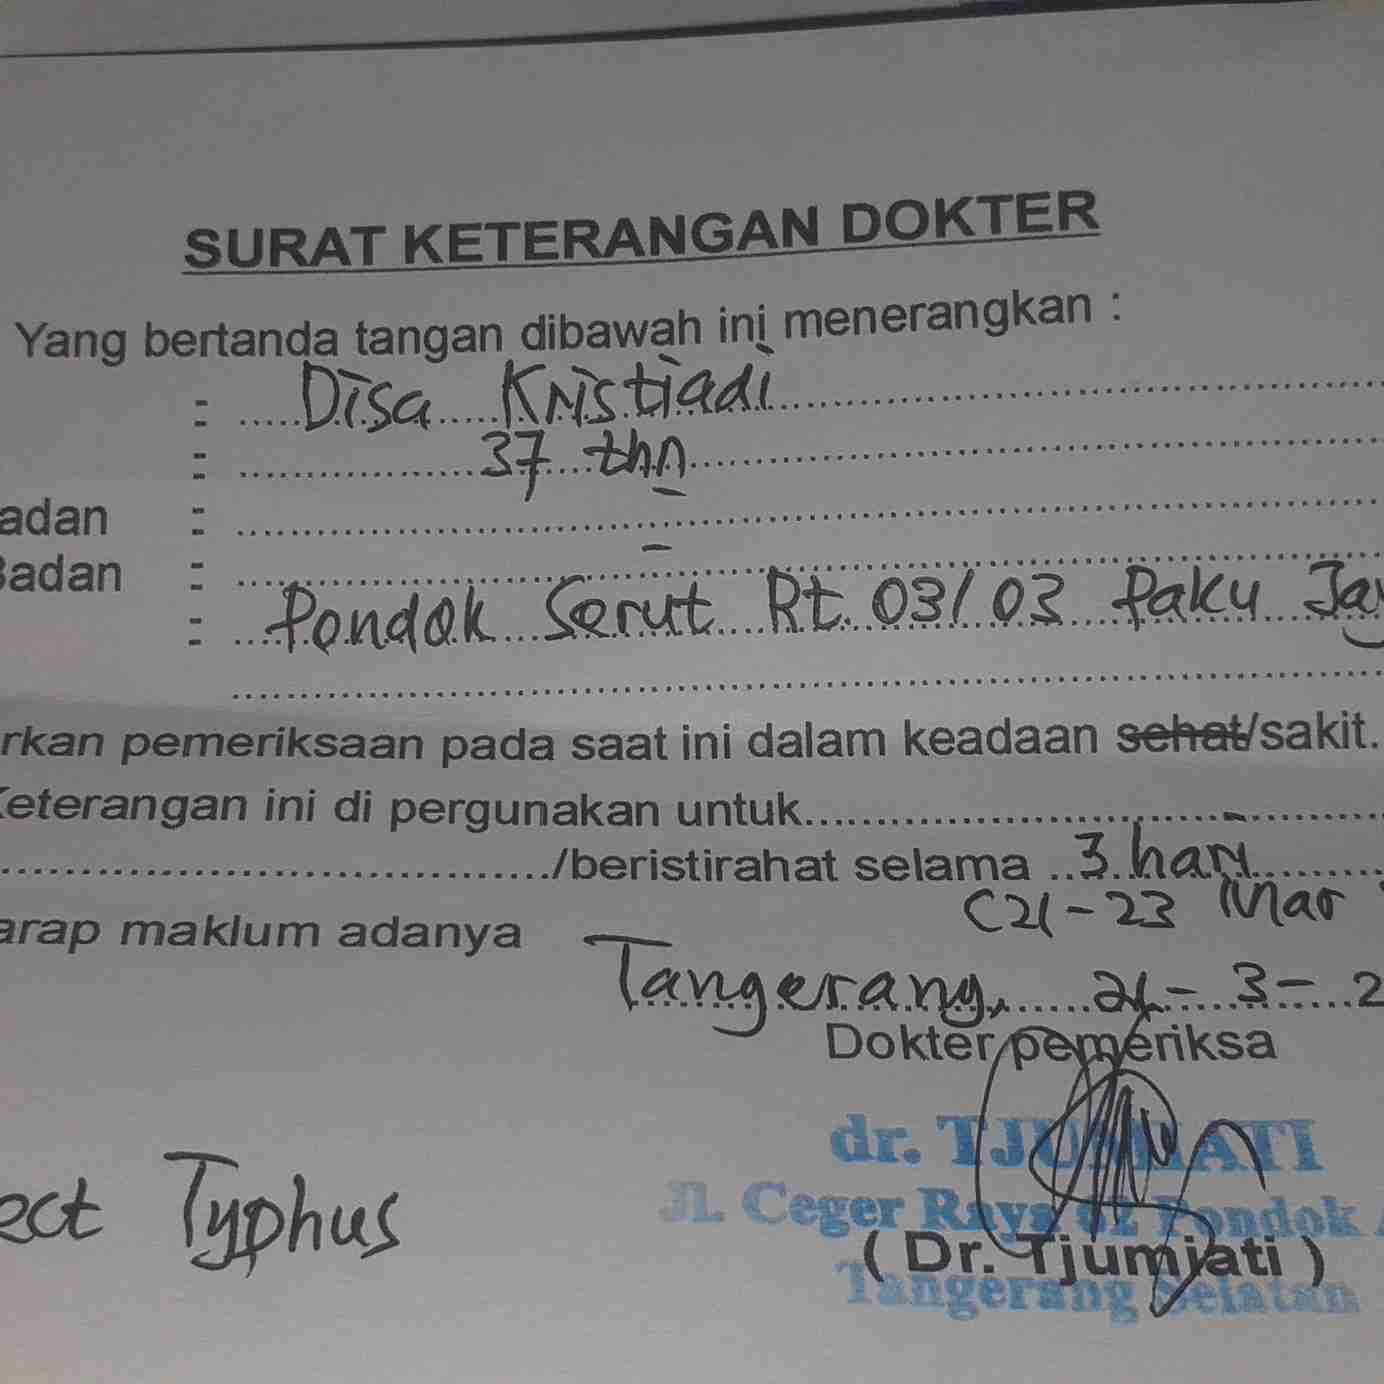 SURAT KETERANGAN DOKTER
Yang bertanda tangan dibawah ini menerangkan :
: Disa Kristiadi
: 37 thn
adan : -
Badan : -
: Pondok Serut Rt. 03/03 Paku Jay
rkan pemeriksaan pada saat ini dalam keadaan sehat/sakit.
Keterangan ini di pergunakan untuk
/beristirahat selama 3 hari
(21-23 Mar
arap maklum adanya
Tangerang, 21-3-2
Dokter pemeriksa
dr. TJUMIATI
Jl. Ceger Raya 62 Pondok
(Dr. Tjumjati)
Tangerang Selatan
ect Typhus